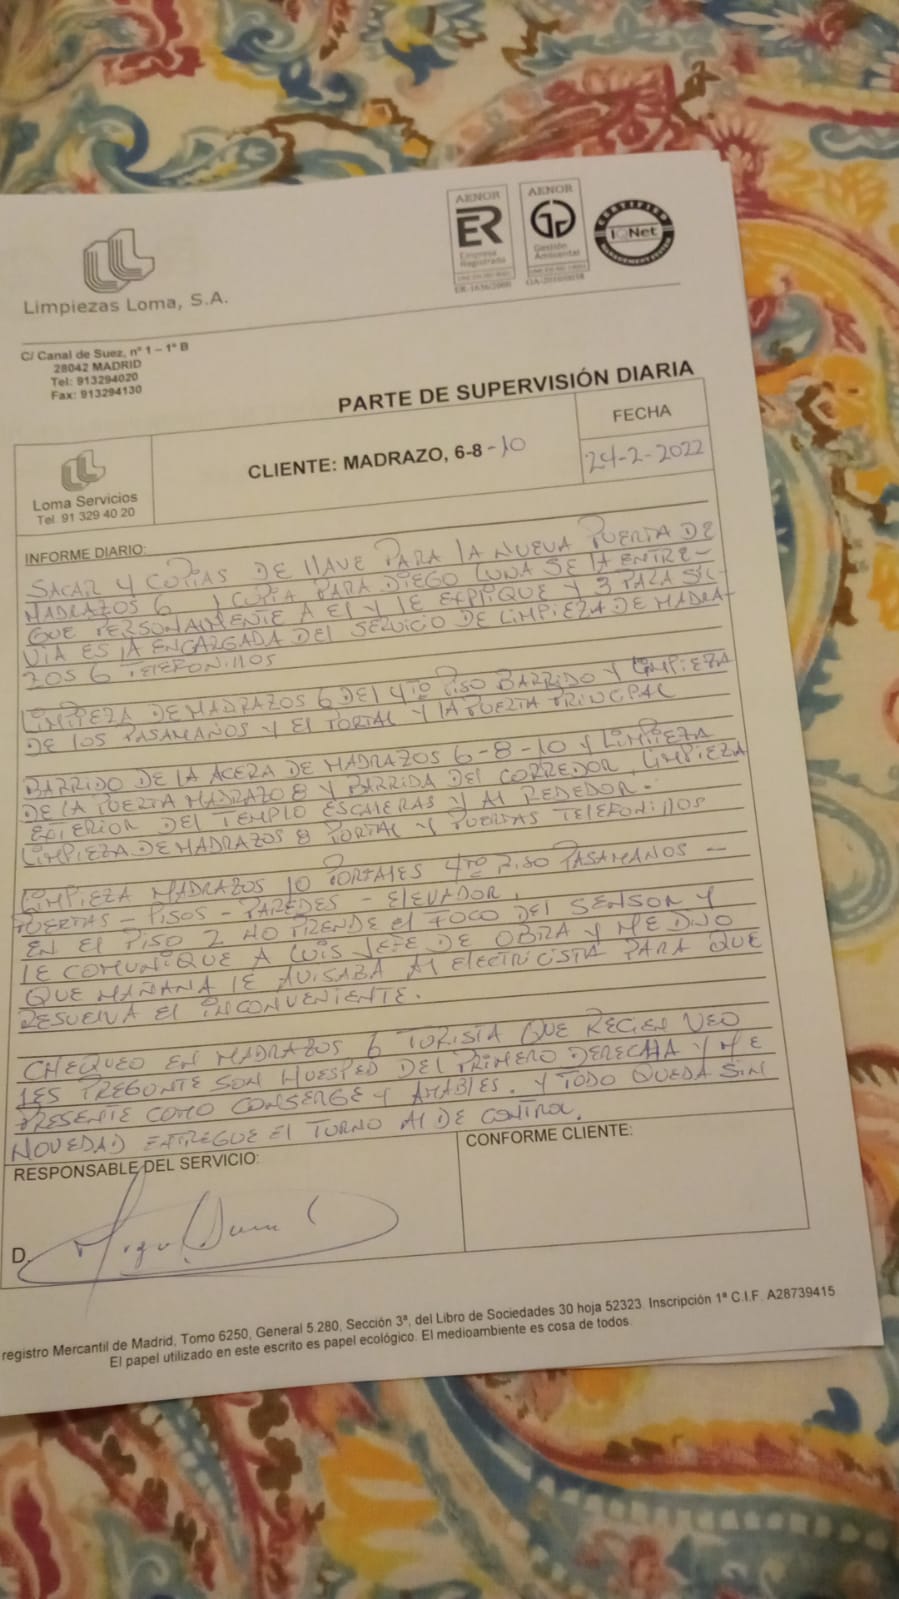 AENOR
ER
Empresa
Registrada
ER-1636/2000
AENOR
Gestión
Ambiental
CERTIFIED
IQNet
MANAGEMENT SYSTEM
Limpiezas Loma, S.A.
C/ Canal de Suez, nº 1 – 1º B
28042 MADRID
Tel: 913294020
Fax: 913294130
PARTE DE SUPERVISIÓN DIARIA
Loma Servicios
Tel. 91 329 40 20
CLIENTE: MADRAZO, 6-8-10
FECHA
24-2-2022
INFORME DIARIO:
SACAR 4 COPIAS DE LLAVE PARA LA NUEVA PUERTA DE
MADRAZOS 6 1 COPIA PARA DIEGO (UNA SE LA ENTRE-
GUE PERSONALMENTE A EL Y LE EXPLIQUE Y 3 PARA SIL-
VIA ES LA ENCARGADA DEL SERVICIO DE LIMPIEZA DE MADRA-
ZOS 6 TELEFONILLOS
LIMPIEZA DE MADRAZOS 6 DEL 4TO PISO BARRIDO Y LIMPIEZA
DE LOS PASAMANOS Y EL PORTAL Y LA PUERTA PRINCIPAL
BARRIDO DE LA ACERA DE MADRAZOS 6-8-10 Y LIMPIEZA
DE LA PUERTA MADRAZO 8 Y BARRIDA DEL CORREDOR, LIMPIEZA
EXTERIOR DEL TEMPLO ESCALERAS Y AL REDEDOR.
LIMPIEZA DE MADRAZOS 8 PORTAL Y PUERTAS TELEFONILLOS
LIMPIEZA MADRAZOS 10 PORTALES 4TO PISO PASAMANOS -
PUERTAS - PISOS - PAREDES - ELEVADOR,
EN EL PISO 2 NO PRENDE EL FOCO DEL SENSOR Y
LE COMUNIQUE A LUIS JEFE DE OBRA Y ME DIJO
QUE MAÑANA LE AVISABA AL ELECTRICISTA PARA QUE
RESUELVA EL INCONVENIENTE.
CHEQUEO EN MADRAZOS 6 TURISTA QUE RECIEN VEO
LES PREGUNTE SON HUESPED DEL PRIMERO DERECHA Y ME
PRESENTE COMO CONSERGE Y AMABLES. Y TODO QUEDA SIN
NOVEDAD ENTREGUE EL TURNO AL DE CONTROL.
RESPONSABLE DEL SERVICIO:
CONFORME CLIENTE:
D.
registro Mercantil de Madrid, Tomo 6250, General 5.280, Sección 3ª, del Libro de Sociedades 30 hoja 52323. Inscripción 1ª C.I.F. A28739415
El papel utilizado en este escrito es papel ecológico. El medioambiente es cosa de todos.